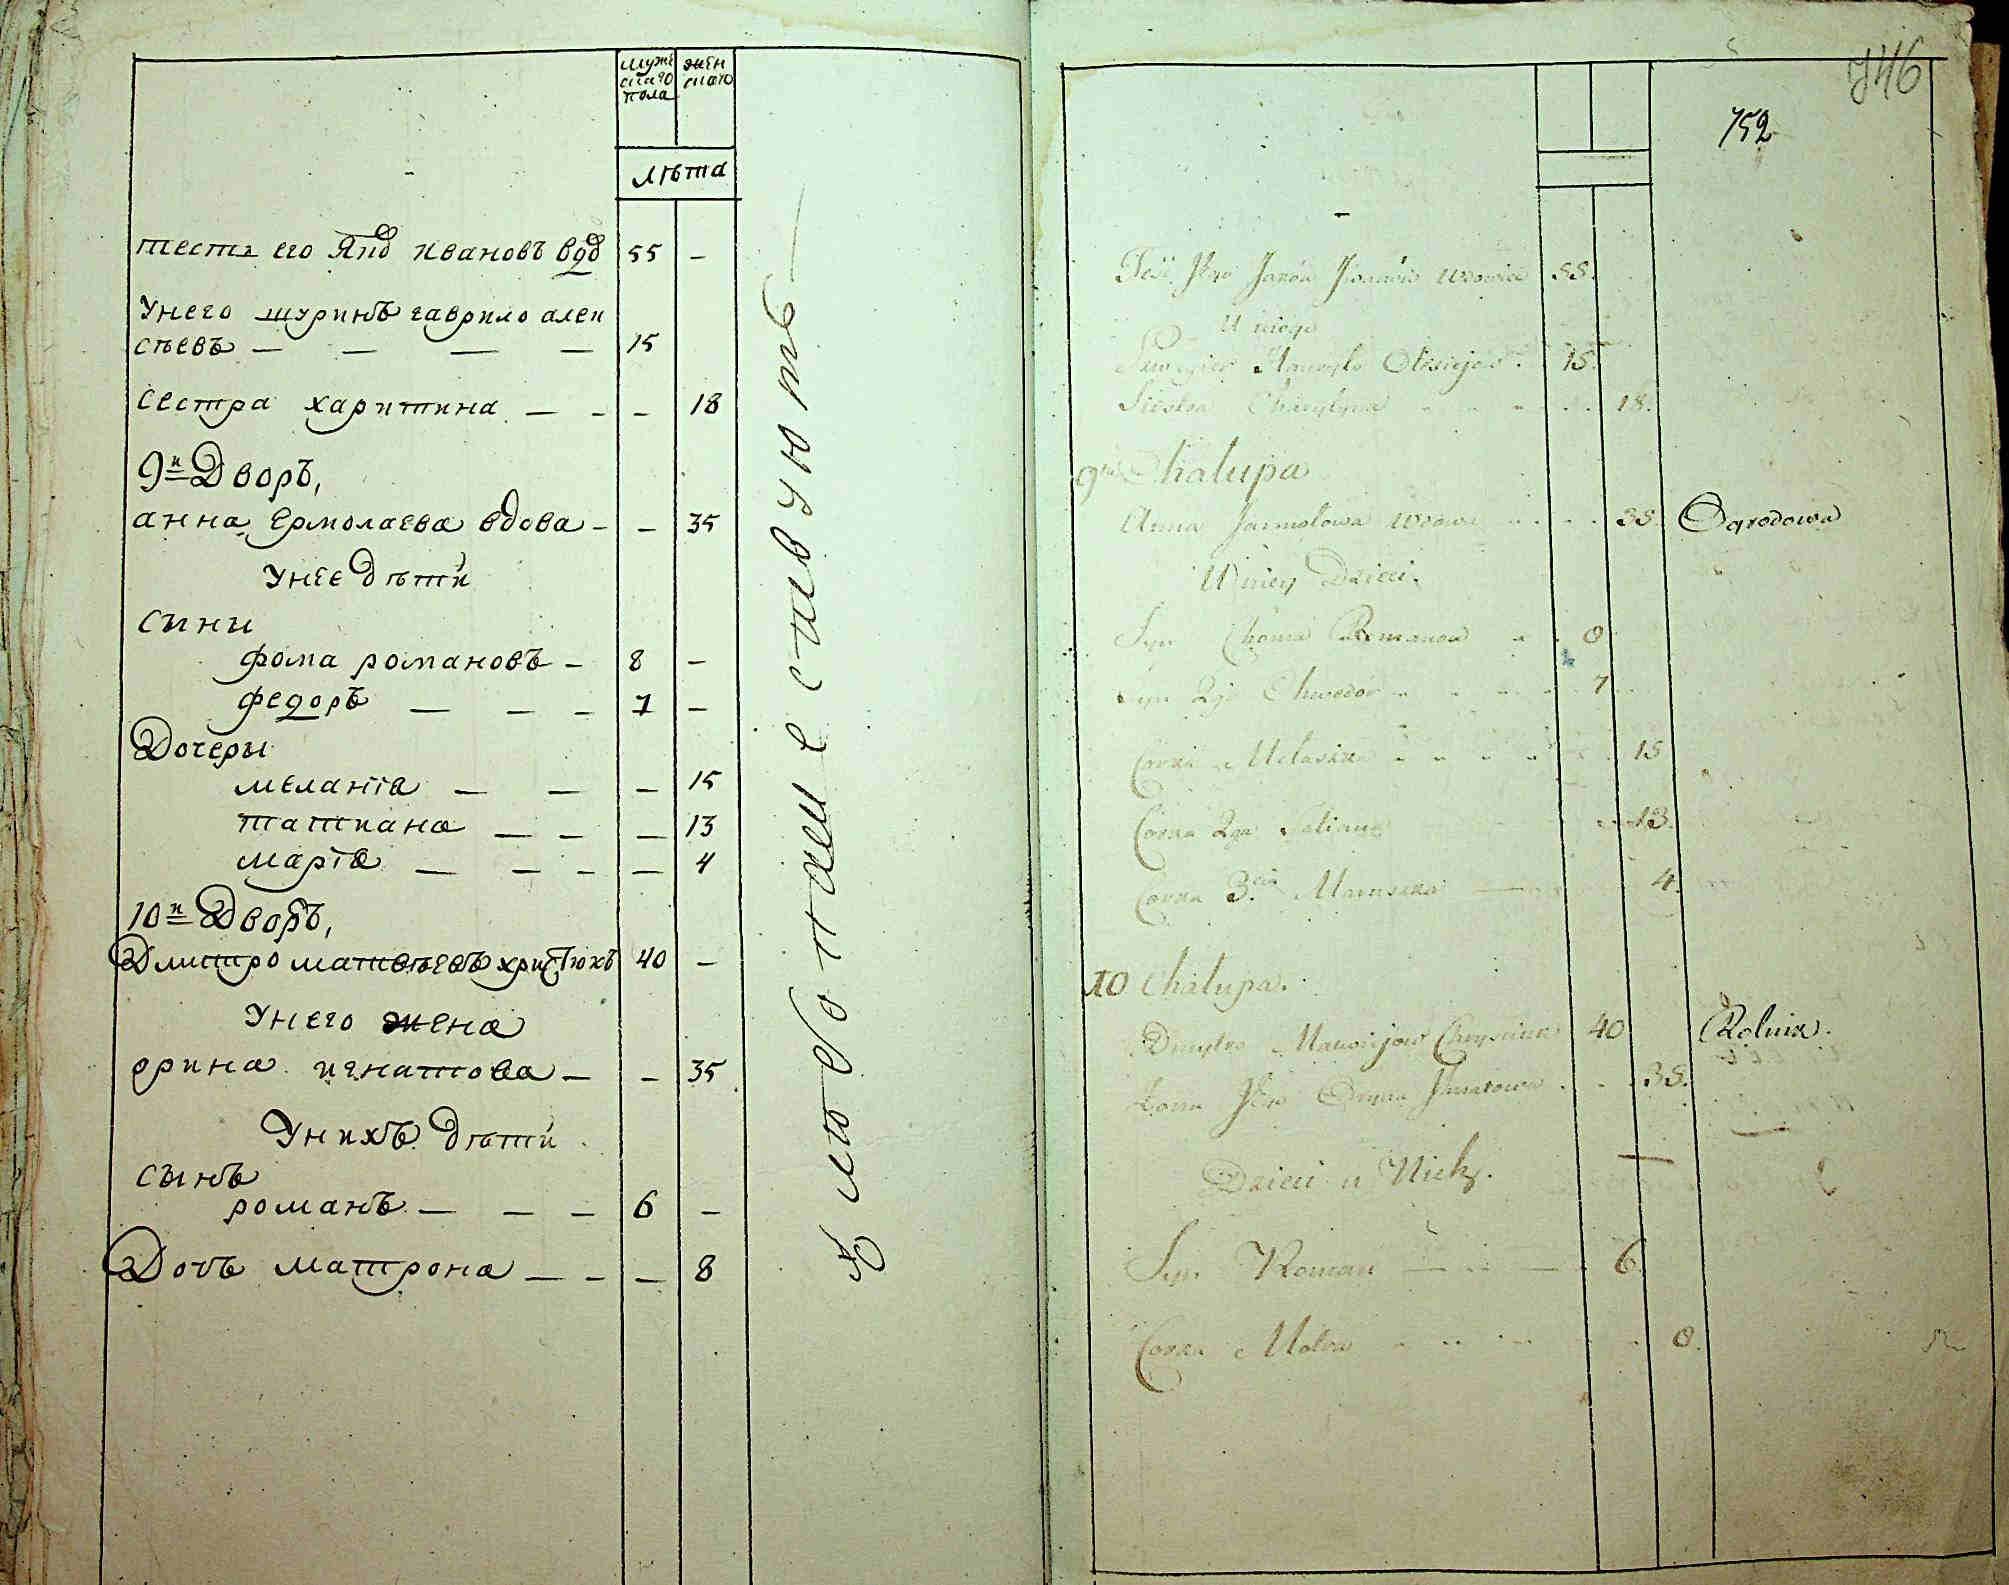 мужескаго пола
женскаго
лѣта
тесть его Яков Ивановъ вдв 55 –
У него шуринъ гаврило алек
сѣевъ — — — — 15
Сестра харитина — - – 18
9й Дворъ,
анна ермолаева вдова – – 35
У нее дѣти
Сыны
фома романовъ – 8 –
федоръ — – – 7 –
Дочеры
меланїя — — — 15
татиана — – — 13
марїя — – – — 4
10й Дворъ,
Дмитро матвѣевъ христюкъ 40 –
У него жена
орина игнатова – – 35
У нихъ дѣти
Сынъ
романъ – – – 6 –
Дочь матрона – - – 8
Tść Jego Jakow Iwanow wdowiec 55.
U niego
Szwagier Hawryło Olexiejow 15.
Siostra Charytyna 18.
9ta Chałupa
Anna Jarmołowa wdowa 35. Ogrodowa
U niey Dzieci.
Syn Choma Romanow 8
Syn 2gi Chwedor 7
Corka Melaszka 15
Corka 2ga Tatiana 13.
Corka 3cia Maruszka 4.
10 Chałupa.
Dmytro Matwiejow Chrysciuk 40 Rolnik.
Żona Jego Oryna Ihnatowa 35.
Dzieci u Nich.
Syn Roman 6
Corka Motra 8.
746
752